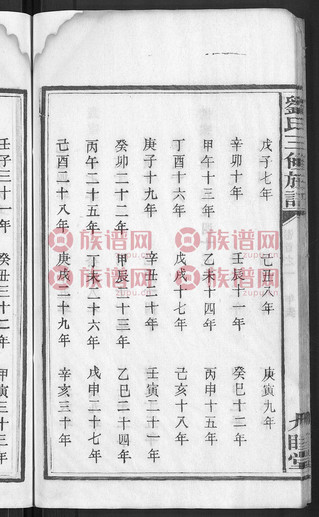 劉氏三修族譜
戊子七年 己丑八年 庚寅九年
辛卯十年 壬辰十一年 癸巳十二年
甲午十三年 乙未十四年 丙申十五年
丁酉十六年 戊戌十七年 己亥十八年
庚子十九年 辛丑二十年 壬寅二十一年
癸卯二十二年 甲辰二十三年 乙巳二十四年
丙午二十五年 丁未二十六年 戊申二十七年
己酉二十八年 庚戌二十九年 辛亥三十年
壬子三十一年 癸丑三十二年 甲寅三十三年
族谱网
zupu.cn
族谱网
zupu.cn
族谱网
zupu.cn
族谱网
zupu.cn